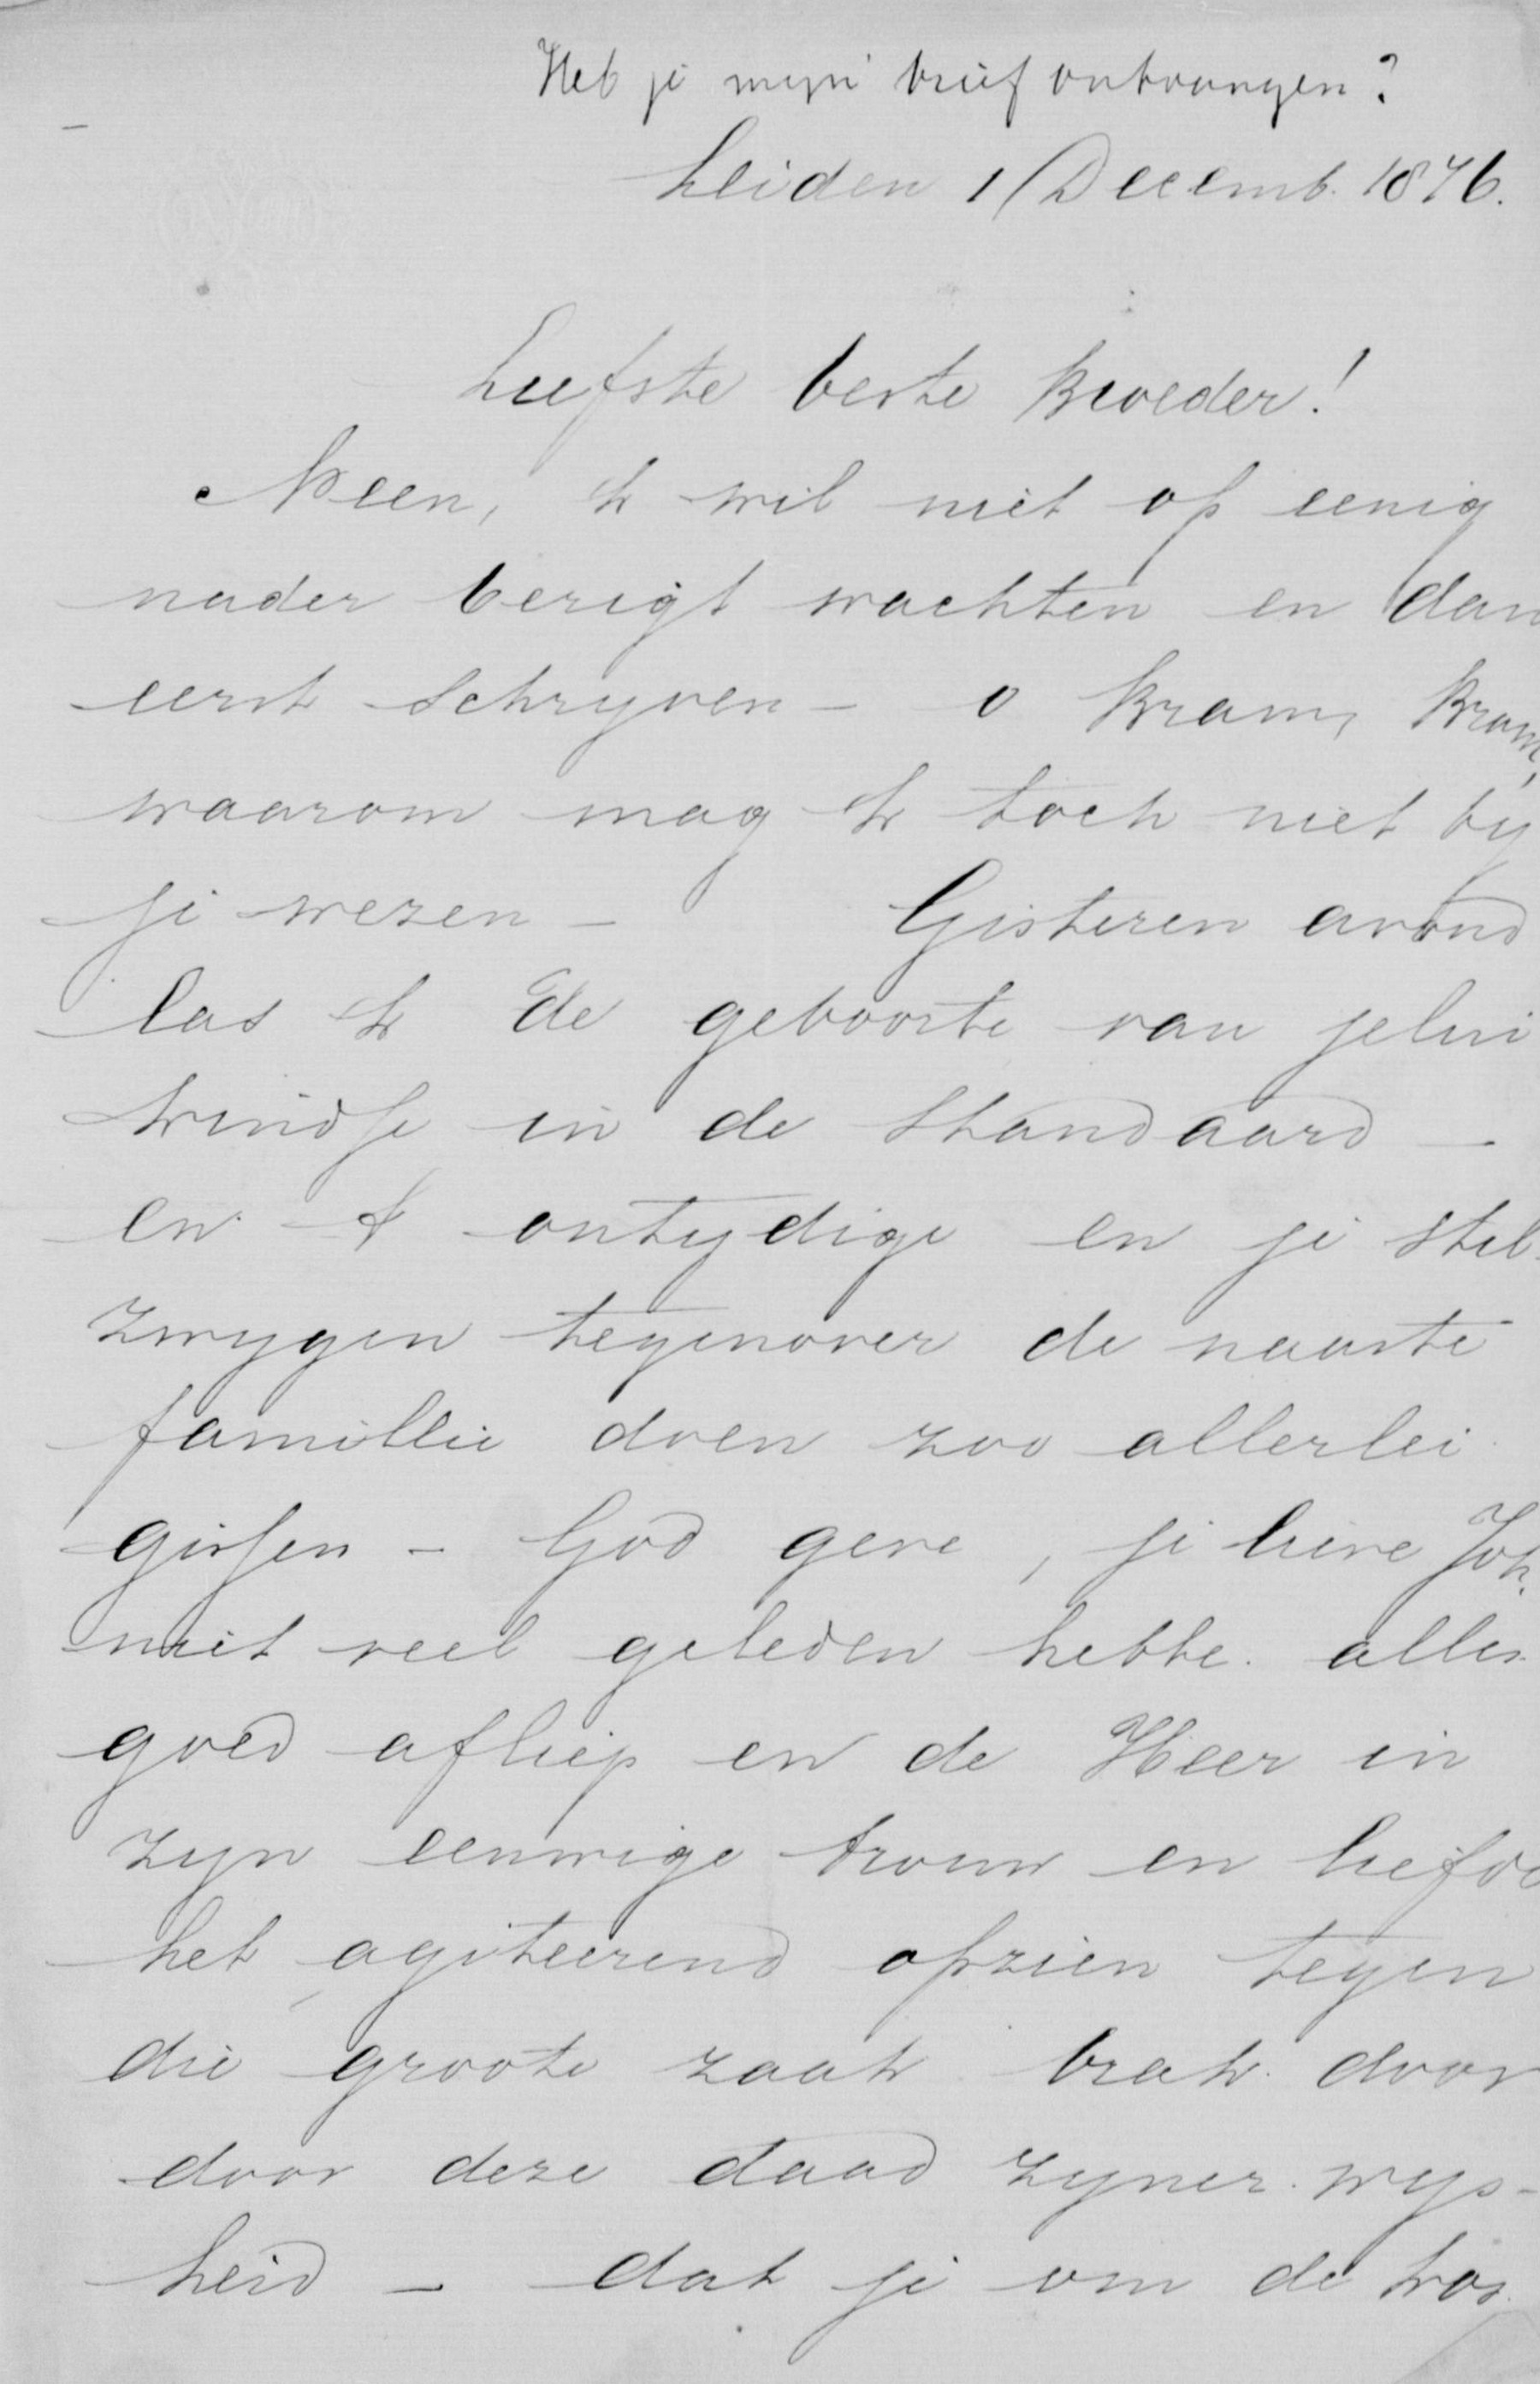 Heb je myn brief ontvangen?
Leiden 1 Decemb. 1876.
Liefste beste Broeder!
Neen, ik wil niet op eenig
nader berigt wachten en dan
eerst schryven - o Bram, Bram,
waarom mag ik toch niet by
je wezen - Gisteren avond
las ik de geboorte van jelui
kindje in de Standaard -
en 't ontydige en je stil-
zwygen tegenover de naaste
famillie doen zoo allerlei
gissen - God geve, je lieve Joh.
niet veel geleden hebbe. alles
goed afliep en de Heer in
zyn eeuwige trouw en liefde
het agiteerend opzien tegen
die groote zaak brak door
door deze daad zyner wys-
heid - dat je om de